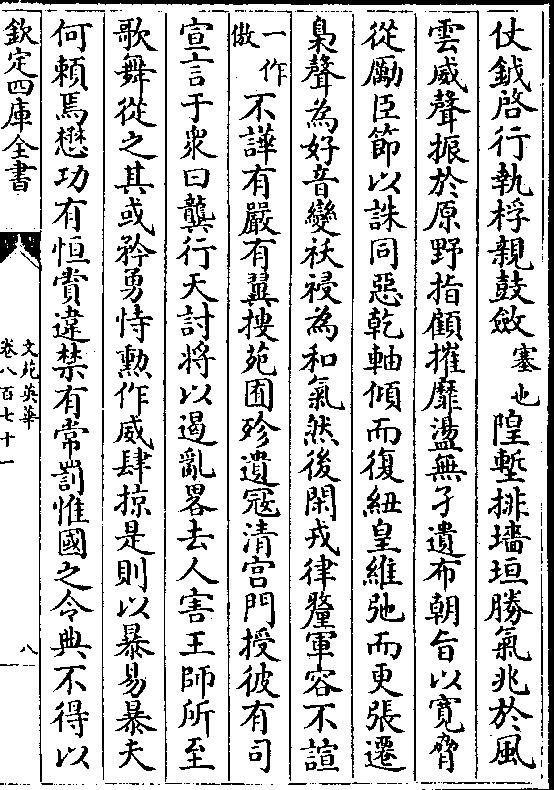 仗鉞啓行執桴親鼓斂塞也隍塹排墻垣勝氣兆於風
雲威聲振於原野指顧摧靡盪無孑遺布朝旨以寛脅
從勵臣節以誅同惡乾軸傾而復紐皇維弛而更張遷
梟聲為好音變祅祲為和氣然後閑戎律釐軍容不諠
一作傲不譁有嚴有翼搜苑囿殄遺冦清宫門授彼有司
宣言于衆曰龔行天討將以遏亂畧去人害王師所至
歌舞從之其或矜勇恃勲作威肆掠是則以暴易暴夫
何頼焉懋功有恒賞違禁有常罰惟國之令典不得以
欽定四庫全書
文苑英華
卷八百七十一
八